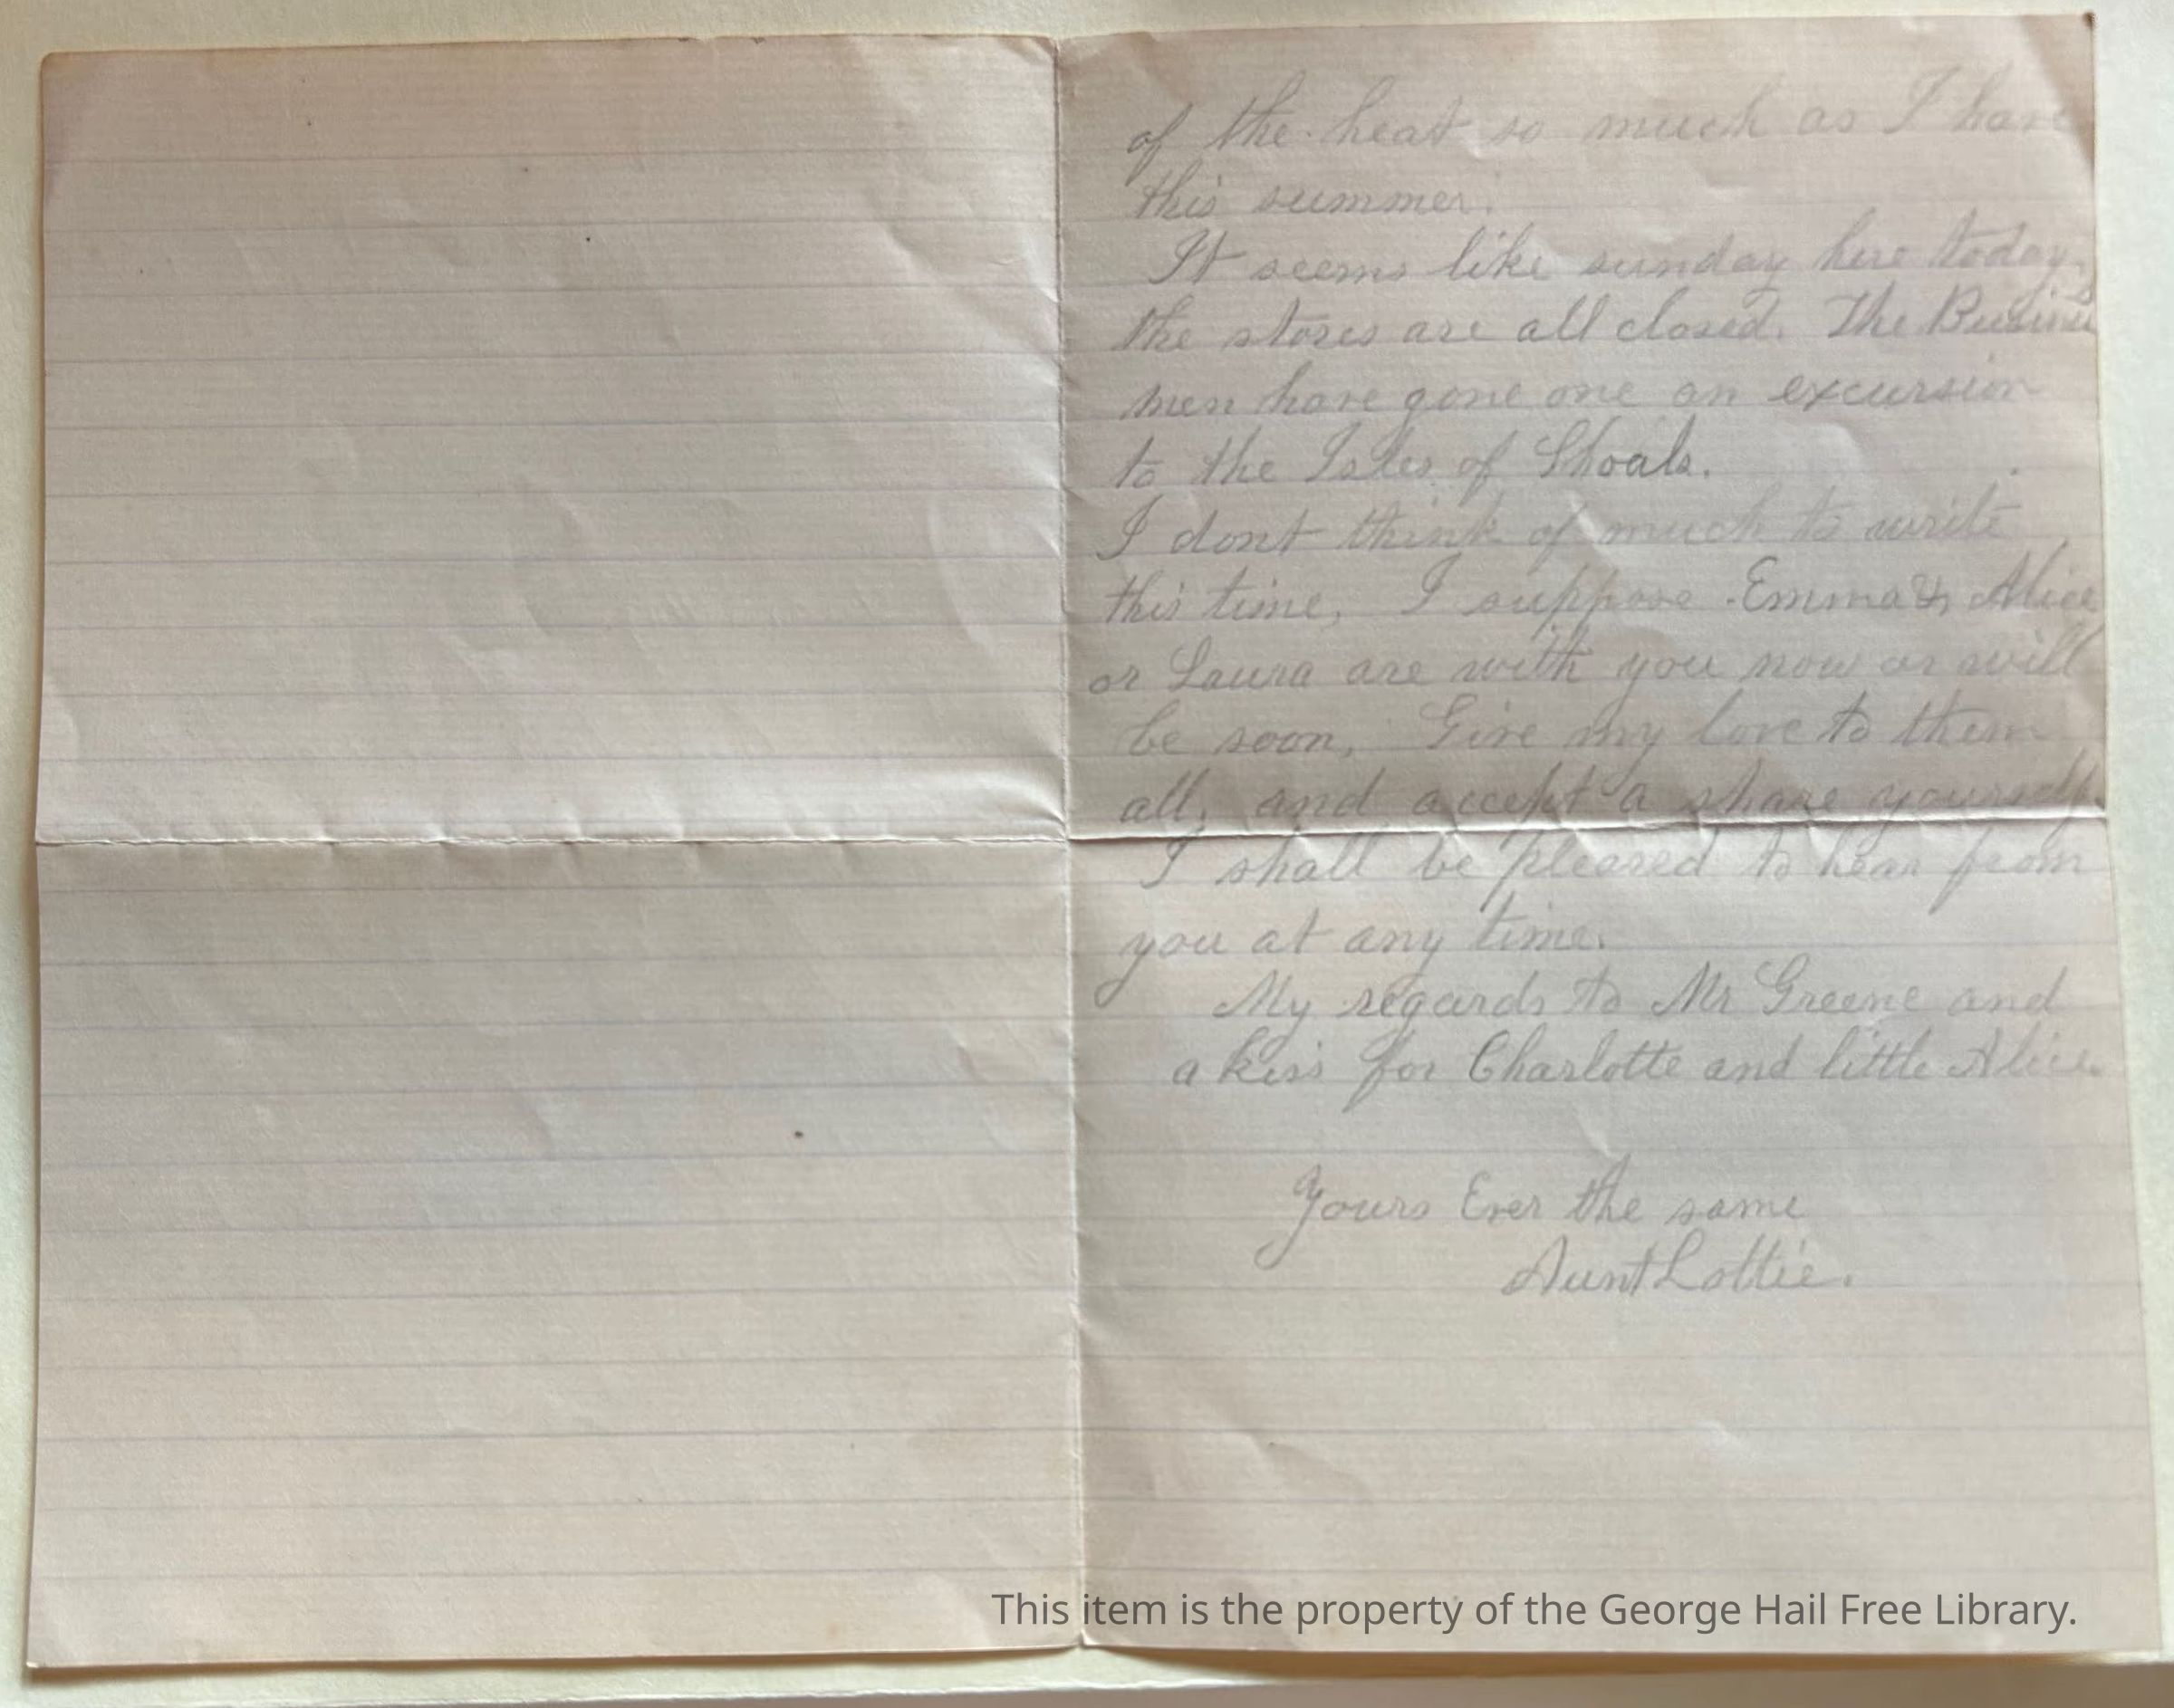 of the heat so much as I have
this summer.
It seems like sunday here today.
the stores are all closed. The Business
men have gone one an excursion
to the Isles of Shoals.
I dont think of much to write
this time, I suppose Emma & Alice
or Laura are with you now or will
be soon, Give my love to them
all, and accept a share yourself.
I shall be pleased to hear from
you at any time.
My regards to Mr Greene and
a kiss for Charlotte and little Alice.
Yours Ever the same
Aunt Lottie.
This item is the property of the George Hail Free Library.